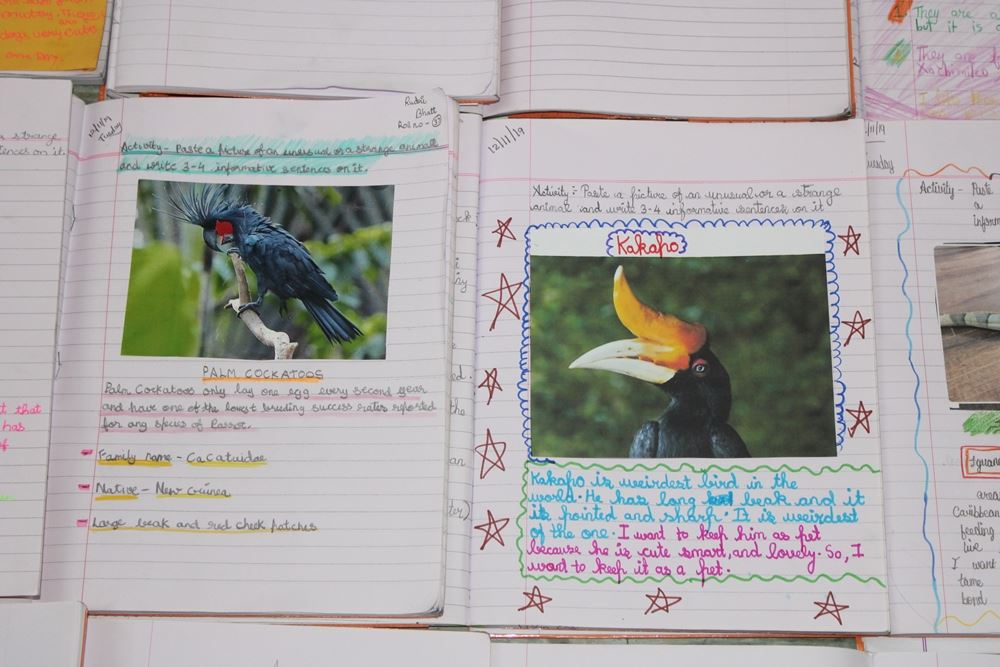 They are
but it is
They are
Xochimilco
I like
very cute
one Day.
strange
tences on it.
t that
has
of
12/11/19
Tuesday
Rudri
Bhatt
Roll no -
Activity - Paste a picture of an unusual or a strange animal
and write 3-4 informative sentences on it.
PALM COCKATOOS
Palm Cockatoos only lay one egg every second year
and have one of the lowest breeding success rates reported
for any species of
Family name - Cacatuidae
Native - New Guinea
Large beak and red cheek patches
12/11/19
Activity :- Paste a picture of an unusual or a strange
animal and write 3-4 informative sentences on it
Kakapo
Kakapo is weirdest bird in the
world. He has long beak and it
is pointed and sharp. It is weirdest
of the one. I want to keep him as pet
because he is cute smart, and lovely. So, I
want to keep it as a pet.
/11/19
Tuesday
Activity - Paste
a
inform
Iguana
area
Caribbean
feeding
live
I want
tame
bond